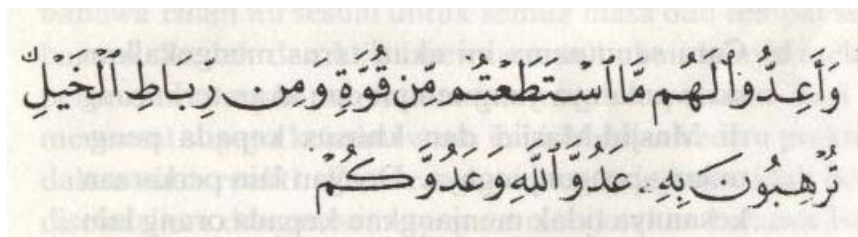 وَأَعِدُّوا۟ لَهُم مَّا ٱسْتَطَعْتُم مِّن قُوَّةٍ وَمِن رِّبَاطِ ٱلْخَيْلِ
تُرْهِبُونَ بِهِۦ عَدُوَّ ٱللَّهِ وَعَدُوَّكُمْ